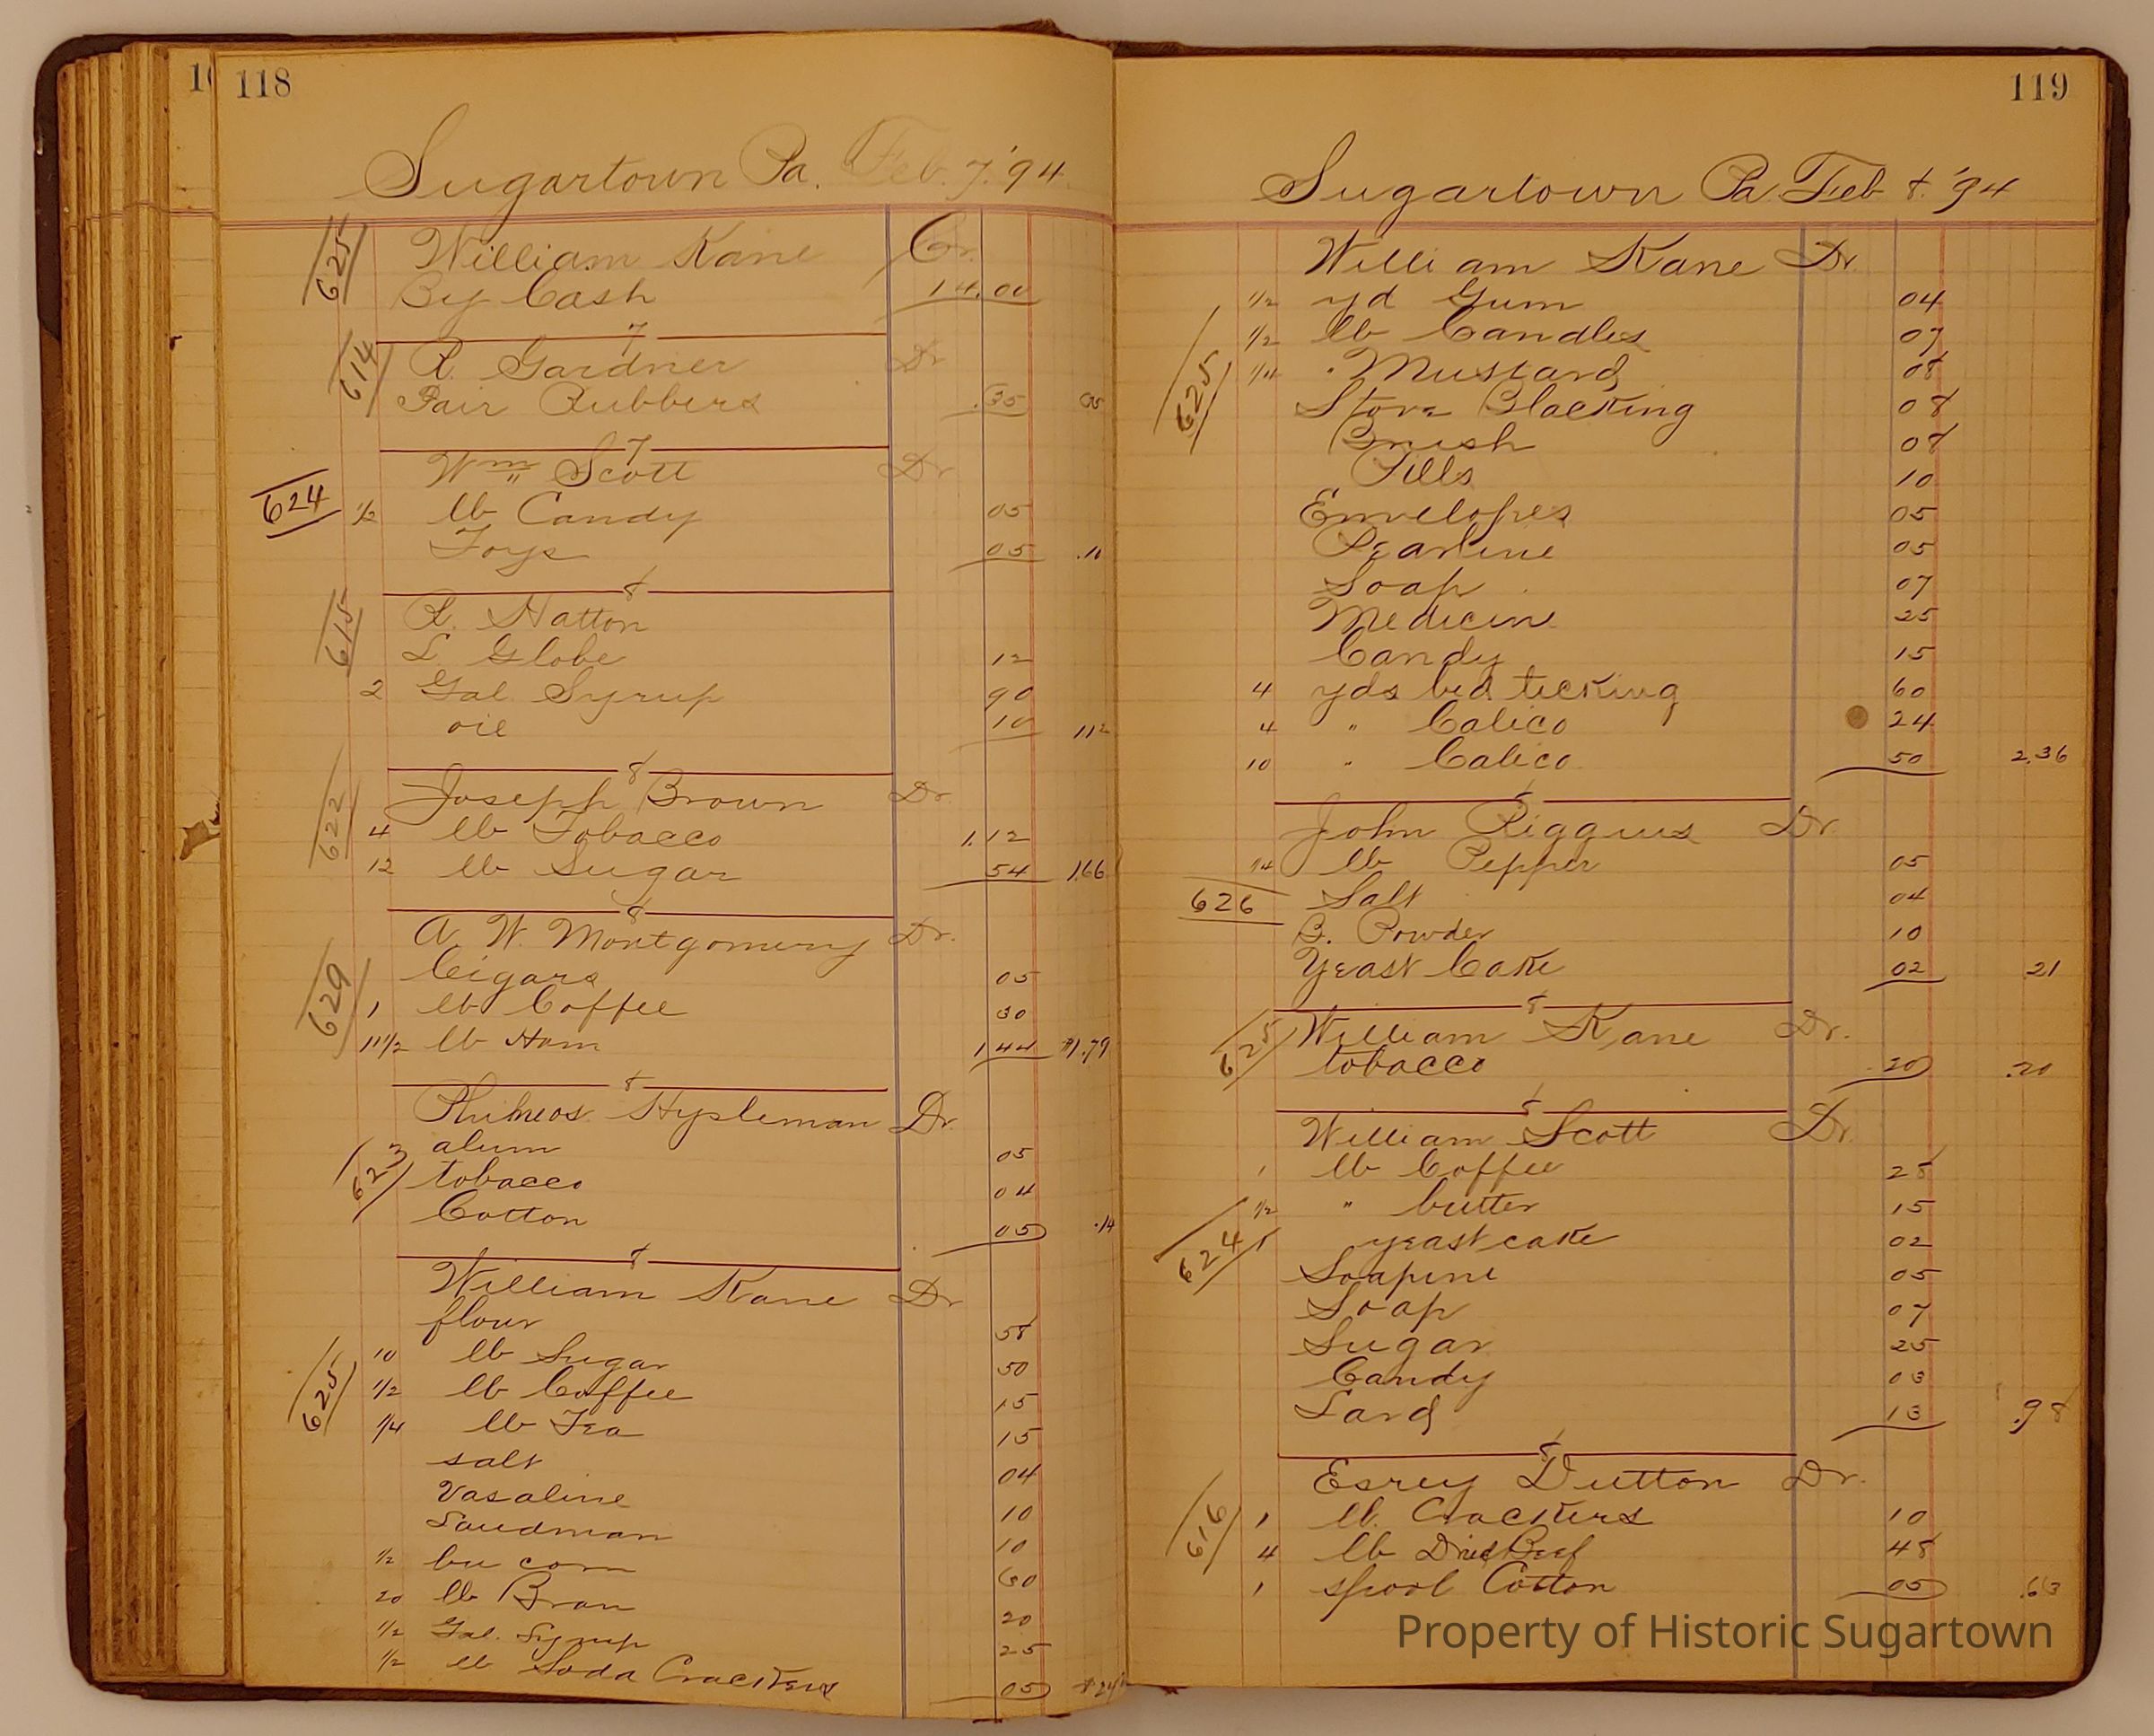 118
Sugartown Pa. Feb. 7. '94
625 William Kane Cr.
By Cash 14.00
7
614 R. Gardner Dr
Pair Rubbers .35 35
7
Wm Scott Dr
624 1/2 lb Candy 05
Toys 05 .10
8
615 R. Hatton
L Globe 12
2 Gal Syrup 90
oil 10 112
8
622 Joseph Brown Dr.
4 lb Tobacco 1.12
12 lb Sugar 54 1.66
8
A. W. Montgomery Dr.
629 Cigars 05
1 lb Coffee 30
11 1/2 lb Ham 1 44 $1.79
8
Dr.
623 alum 05
tobacco 04
Cotton 05 .14
8
William Kane Dr
flour 58
625 10 lb Sugar 50
1/2 lb Coffee 15
1/4 lb Tea 15
salt 04
Vasaline 10
Sandman 10
1/2 bu corn 30
20 lb Bran 20
1/2 Gal. Syrup 25
1/2 lb Soda Crackers 05
119
Sugartown Pa Feb 8. '94
William Kane Dr.
1/2 yd Gum 04
1/2 lb Candles 07
625 1/4 " Mustard 08
Stove Blacking 08
Brush 08
Pills 10
Envelopes 05
Pearline 05
Soap 07
Medicine 25
Candy 15
4 yds bed ticking 60
4 " Calico 24
10 " Calico 50 2.36
8
John Riggins Dr
1/4 lb Pepper 05
626 Salt 04
B. Powder 10
Yeast Cake 02 21
8
625 William Kane Dr.
tobacco 20 .20
8
William Scott Dr.
1 lb Coffee 28
1/2 " butter 15
624 1 yeast cake 02
Soapine 05
Soap 07
Sugar 25
Candy 03
Lard 13 .98
8
Esrey Dutton Dr.
616 1 lb. Crackers 10
4 lb Dried Beef 48
1 spool Cotton 05 .63
Property of Historic Sugartown